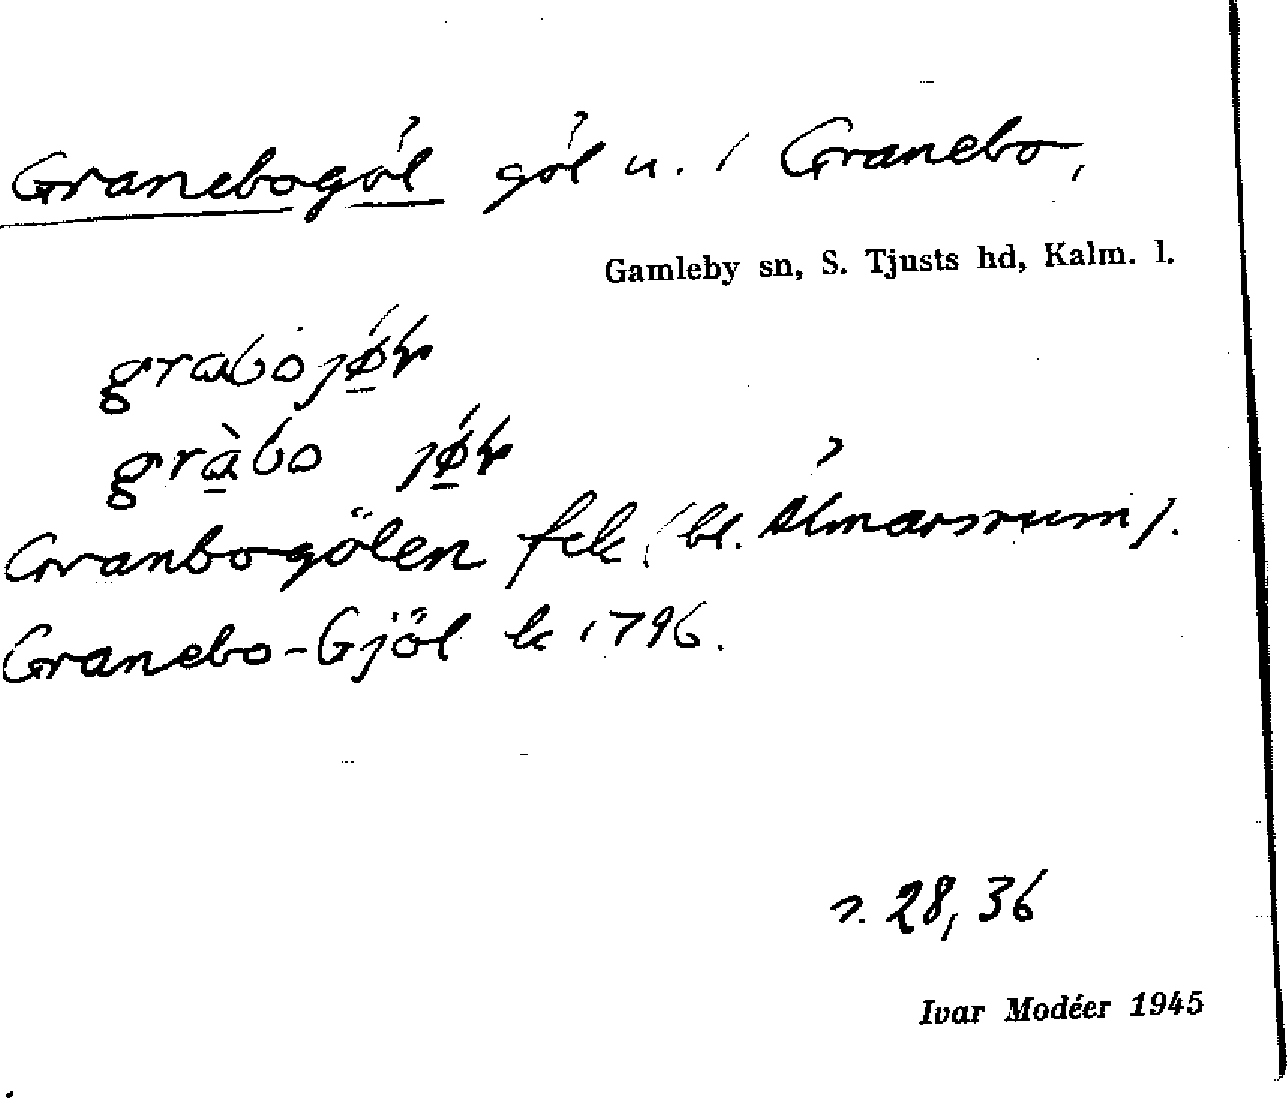 Granebogöl göl u. / Granebo,
Gamleby sn, S. Tjusts hd, Kalm. l.
Granbogölen fek (bl. Almarsrum).
Granebo-Gjöl lc 1796.
s. 28, 36
Ivar Modéer 1945